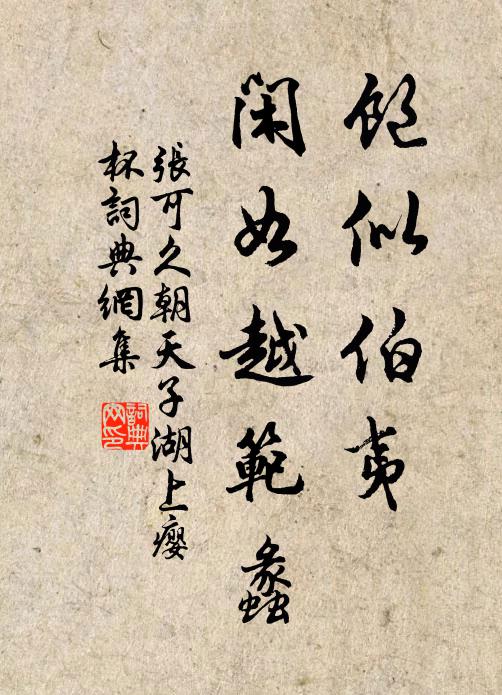 飽似伯夷
閑如越範蠡
張可久朝天子湖上癭
杯詞典網集
詞典
网印